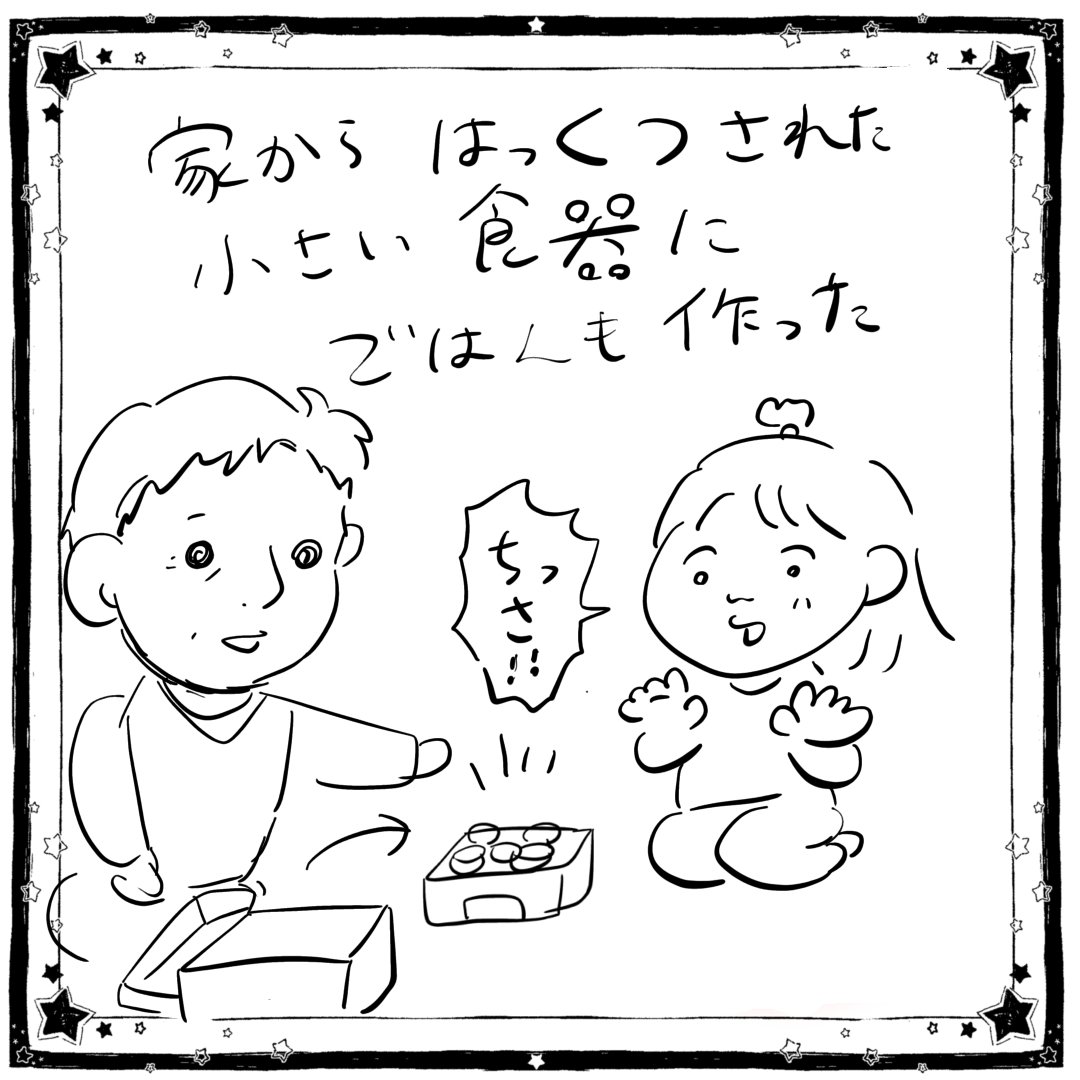 家から はっくつされた
小さい 食器に
ごはんも 作った
ちっ
さ!!